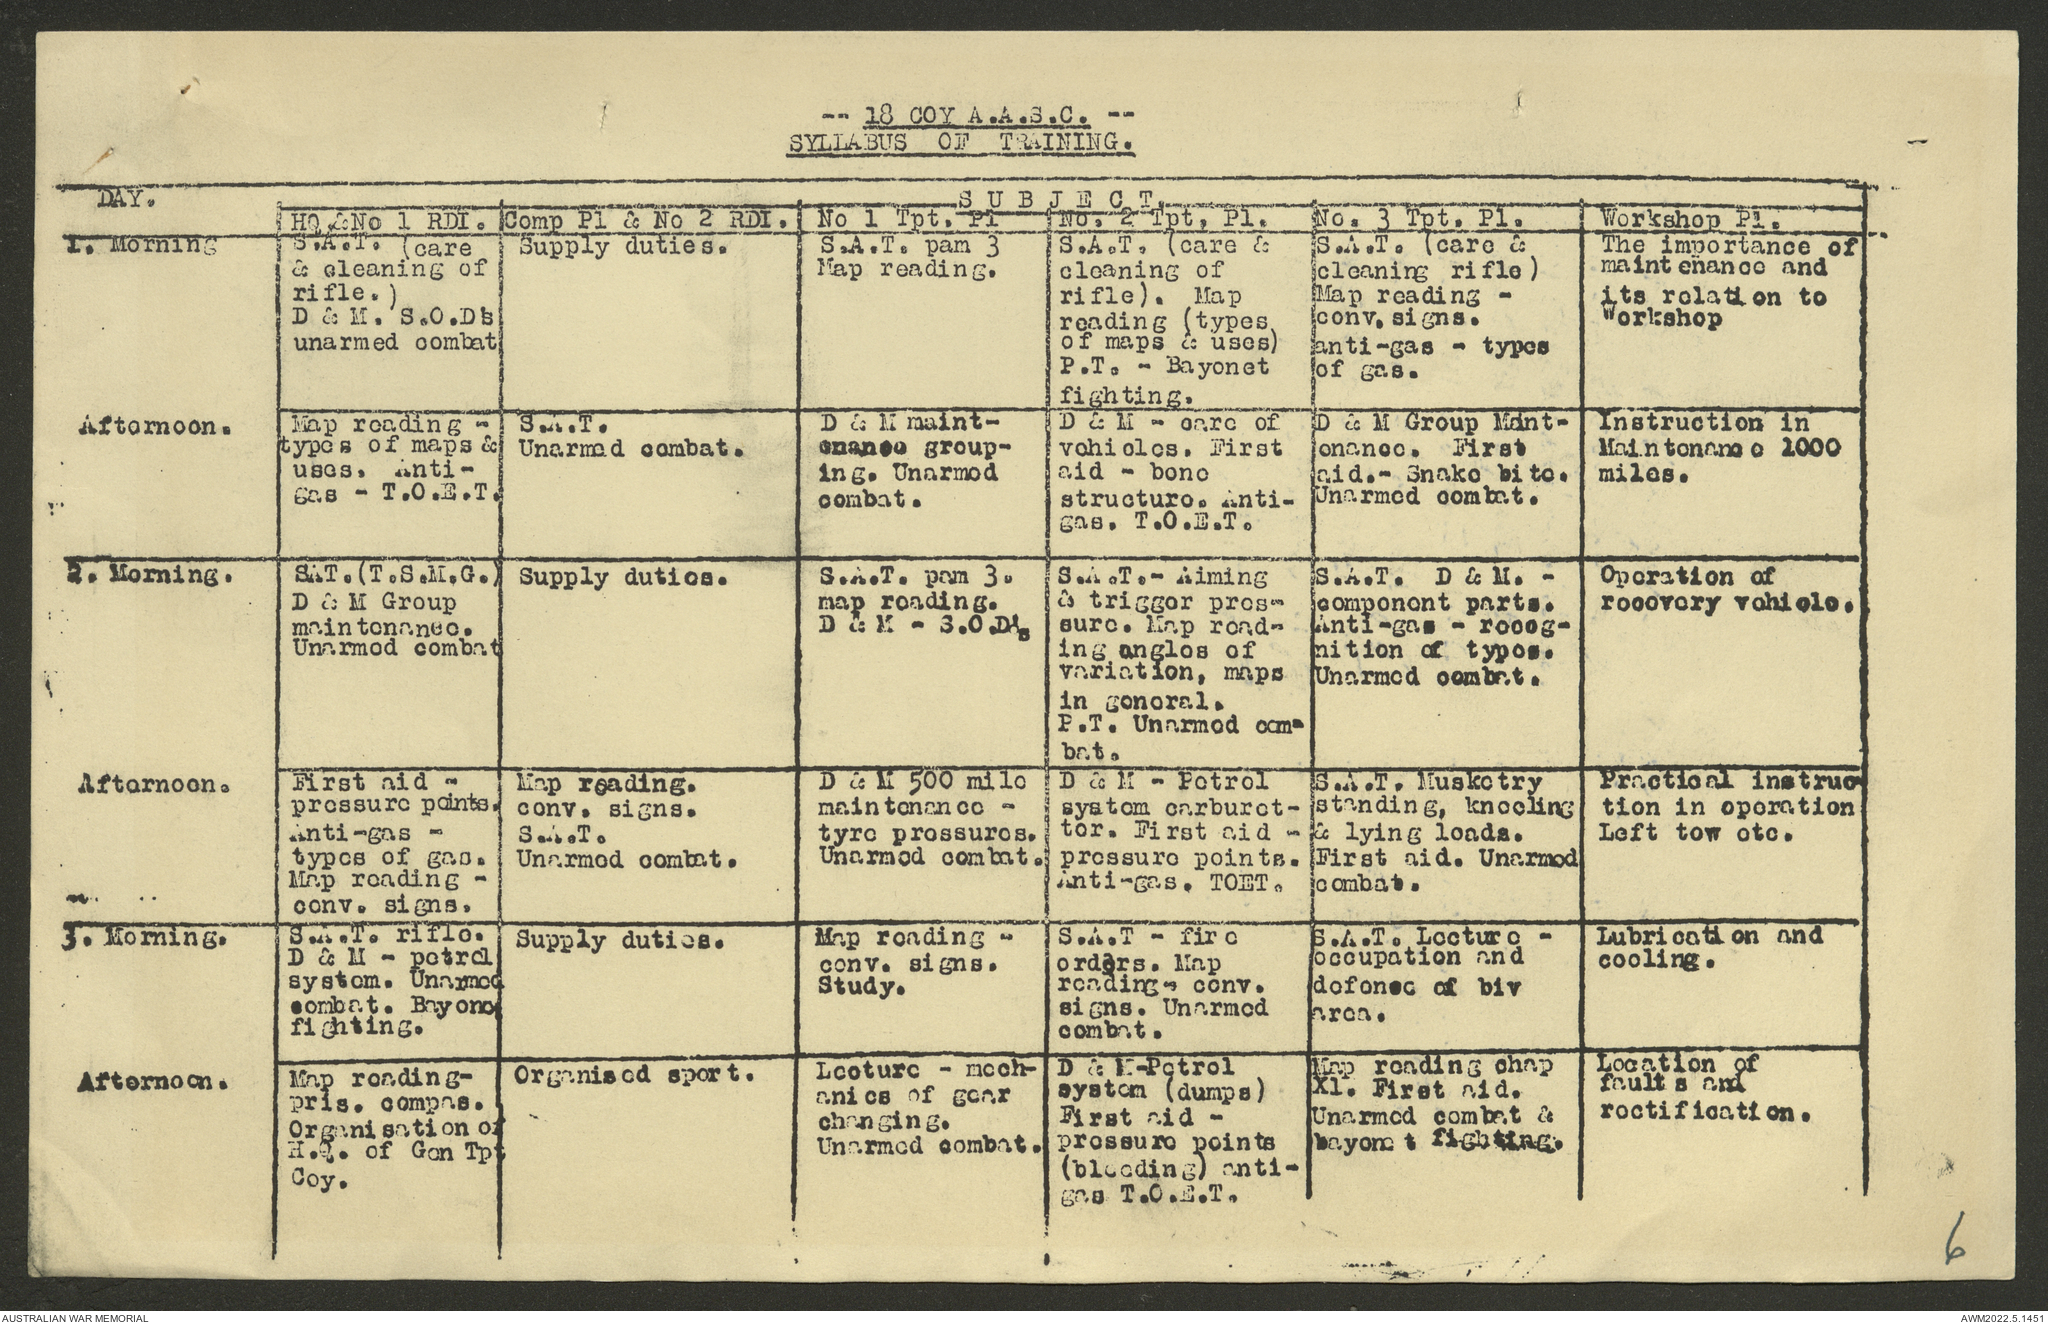 -- 18 COY A.A.S.C. --
SYLLABUS OF TRAINING.
DAY.
SUBJECT.
HQ &No 1 RDI.
Comp Pl & No 2 RDI.
No 1 Tpt. Pl
No. 2 Tpt, Pl.
No. 3 Tpt. Pl.
Workshop Pl.
1. Morning
S.A.T. (care
& cleaning of
rifle.)
D & M. S.O.D's
unarmed combat
Supply duties.
S.A.T. pam 3
Map reading.
S.A.T. (care &
cleaning of
rifle). Map
reading (types
of maps & uses)
P.T. - Bayonet
fighting.
S.A.T. (care &
cleaning rifle)
Map reading -
conv. signs.
anti-gas - types
of gas.
The importance of
maintenance and
its relation to
Workshop
Afternoon.
Map reading -
types of maps &
uses. Anti-
gas - T.O.E.T.
S.A.T.
Unarmed combat.
D & M maint-
enance group-
ing. Unarmed
combat.
D & M - care of
vehicles. First
aid - bone
structure. Anti-
gas. T.O.E.T.
D & M Group Maint-
enance. First
aid.- Snake bite.
Unarmed combat.
Instruction in
Maintenance 1000
miles.
2. Morning.
SAT.(T.S.M.G.)
D & M Group
maintenance.
Unarmed combat
Supply duties.
S.A.T. pam 3.
map reading.
D & M - S.O.D's
S.A.T.- Aiming
& trigger pres-
sure. Map read-
ing angles of
variation, maps
in general.
P.T. Unarmed com-
bat.
S.A.T. D & M. -
component parts.
Anti-gas - recog-
nition of types.
Unarmed combat.
Operation of
recovery vehicle.
Afternoon.
First aid -
pressure points.
Anti-gas -
types of gas.
Map reading -
conv. signs.
Map reading.
conv. signs.
S.A.T.
Unarmed combat.
D & M 500 mile
maintenance -
tyre pressures.
Unarmed combat.
D & M - Petrol
system carburet-
tor. First aid -
pressure points.
Anti-gas. TOET.
S.A.T. Musketry
standing, kneeling
& lying loads.
First aid. Unarmed
combat.
Practical instruc-
tion in operation
Left tow etc.
3. Morning.
S.A.T. rifle.
D & M - petrol
system. Unarmed
combat. Bayone
fighting.
Supply duties.
Map reading -
conv. signs.
Study.
S.A.T - fire
orders. Map
reading- conv.
signs. Unarmed
combat.
S.A.T. Lecture -
occupation and
defence of biv
area.
Lubrication and
cooling.
Afternoon.
Map reading-
pris. compas.
Organisation of
H.Q. of Gen Tpt
Coy.
Organised sport.
Lecture - mech-
anics of gear
changing.
Unarmed combat.
D & M-Petrol
system (dumps)
First aid -
pressure points
(bleeding) anti-
gas T.O.E.T.
Map reading chap
X1. First aid.
Unarmed combat &
bayonet fighting.
Location of
faults and
rectification.
6
AUSTRALIAN WAR MEMORIAL
AWM2022.5.1451